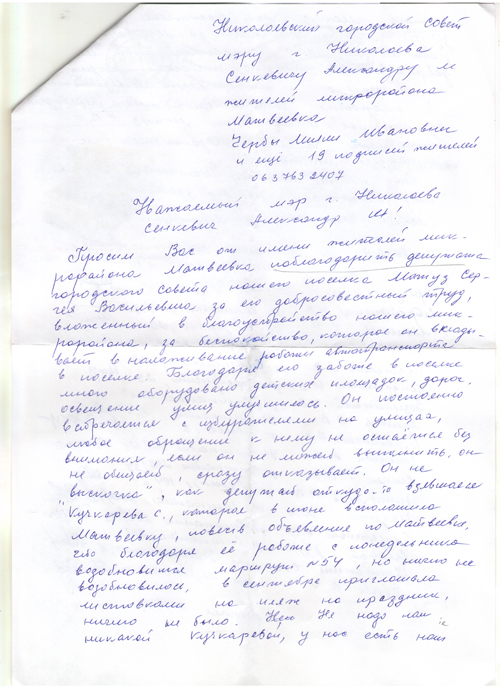 Николаевский городской совет
мэру г Николаева
Сенкевичу Александру
жителей микрорайона
Матвеевка
Чербы Ивановны
и ещё 19 подписей жителей
063 763 2407
Уважаемый мэр г. Николаева
Сенкевич Александр
Просим Вас от имени жителей мик-
рорайона Матвеевка поблагодарить депутата
городского совета нашего поселка Сер-
гея Васильевича за его добросовестный труд,
вложенный в благоустройство нашего мик-
рорайона, за беспокойство, которое он вклады-
вает в налаживание работы автотранспорта
в поселке. Благодаря его заботе в поселке
много оборудовано детских площадок, дорог.
освещение улиц улучшилось. Он постоянно
встречается с избирателями на улицах,
любое обращение к нему не остаётся без
внимания, если он не может выполнить, он
не обещает, сразу отказывает. Он не
"выскочка", как депутат откуда-то взявшаяся
Кучкарева С., которая в июне всполошила
Матвеевку, повесив объявление по Матвеевке,
что благодаря её работе с понедельника
возобновится маршрут №54, но ничего не
возобновилось, в сентябре приглашала
листовками на пляж на праздник,
ничего не было. Не надо нам
никакой Кучкаревой, у нас есть наш